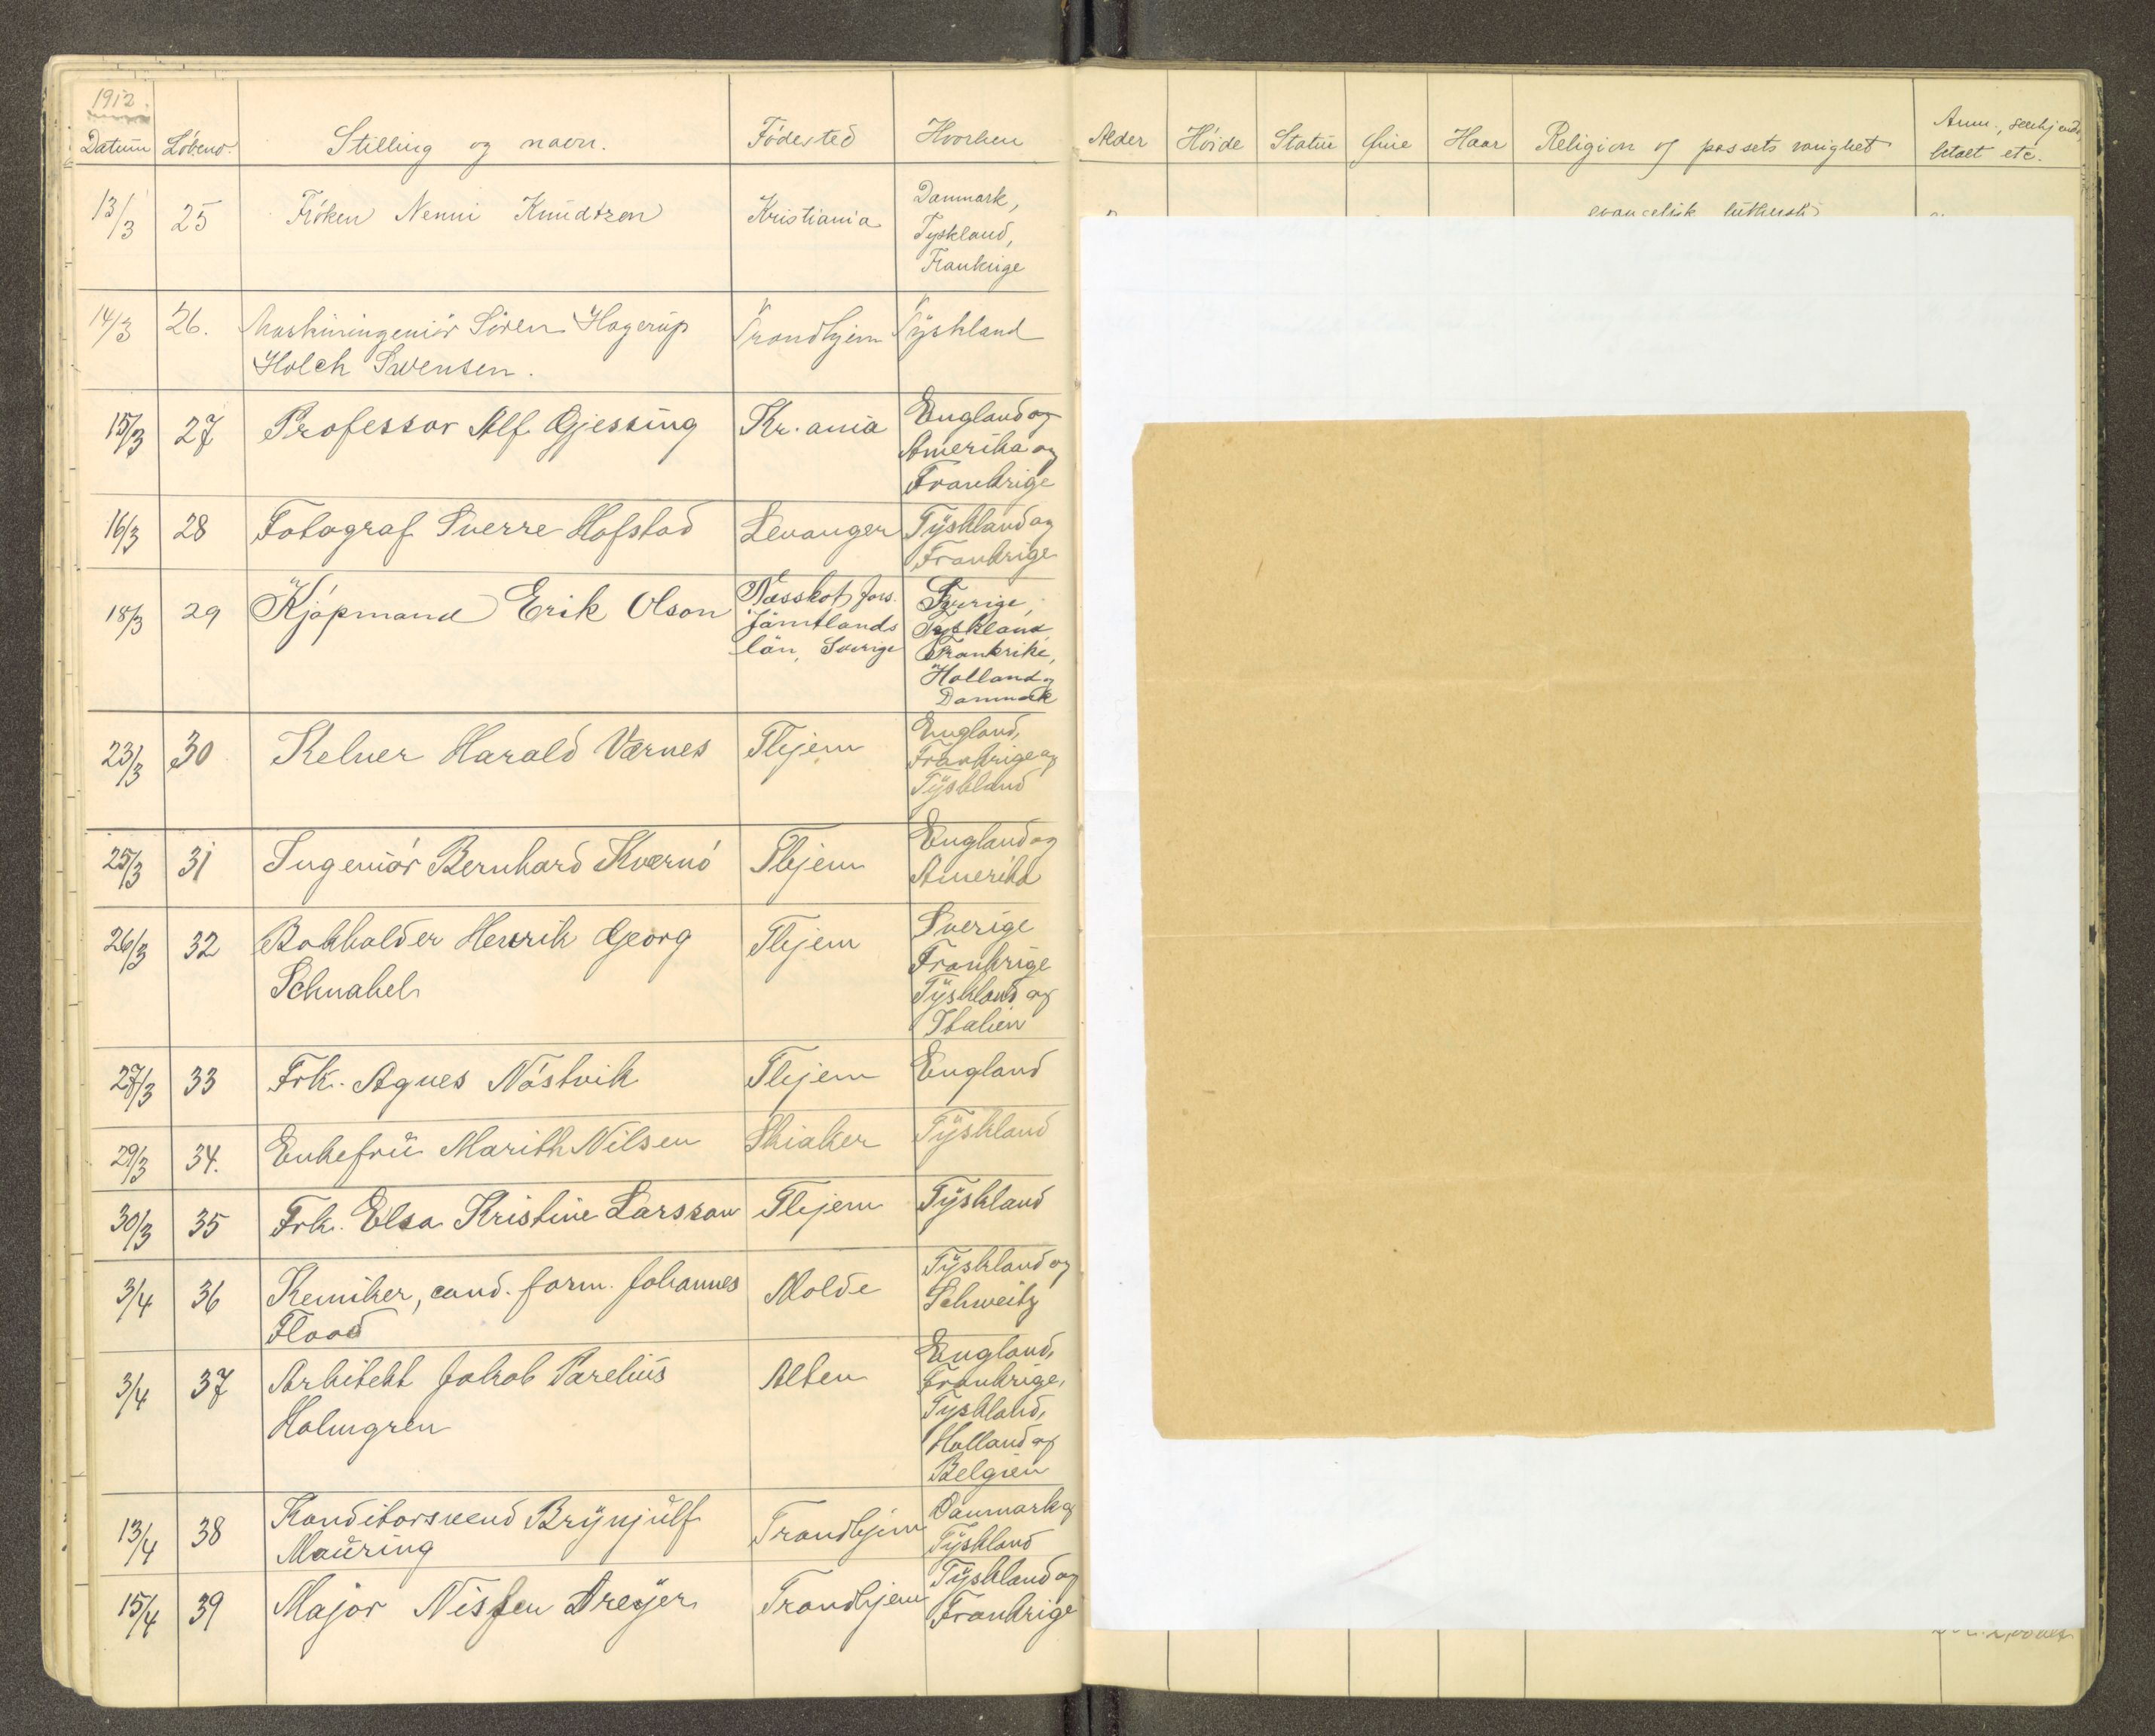 1912.
Datum Löbeno. Stilling og navn. Födested Hvorhen Alder Höide Statür Öine Haar Religion og passets varighet Anm., selvhjemls, betalt etc.
13/3 25 Fröken Nenni Knudtzon Kristiania Danmark,
Tyskland,
Frankrige
evangelisk luthersk
14/3 26. Maskiningeniör Sören Hagerup Trondhjem Tyskland
Holch Svensen.
15/3 27 Professor Alf Gjessing Kr.ania England og
Amerika og
Frankrige
16/3 28 Fotograf Sverre Hofstad Levanger Tyskland og
Frankrige
18/3 29 Kjöpmand Erik Olson Næsskot fors. Sverige,
Jämtlands Tyskland,
län, Sverige Frankrike,
Holland og
Danmark
23/3 30 Kelner Harald Værnes Thjem England,
Frankrige og
Tyskland
25/3 31 Ingeniör Bernhard Kvernö Thjem England og
Amerika
26/3 32 Bokholder Henrik Georg Thjem Sverige
Schnabel Frankrige
Tyskland og
Italien
27/3 33 Frk. Agnes Nöstvik Thjem England
29/3 34. Enkefrü Marith Nilsen Skiaker Tyskland
30/3 35 Frk. Elsa Kristine Larsson Thjem Tyskland
3/4 36 Kemiker, cand. farm. Johannes Molde Tyskland og
Flood Schweitz
3/4 37 Arkitekt Jakob Parelius Alten England,
Holmgren Frankrige,
Tyskland,
Holland og
Belgien
13/4 38 Konditorsvend Brynjulf Trondhjem Danmark og
Mauring Tyskland
15/4 39 Major Nissen Dreyer Trondhjem Tyskland og
Frankrige